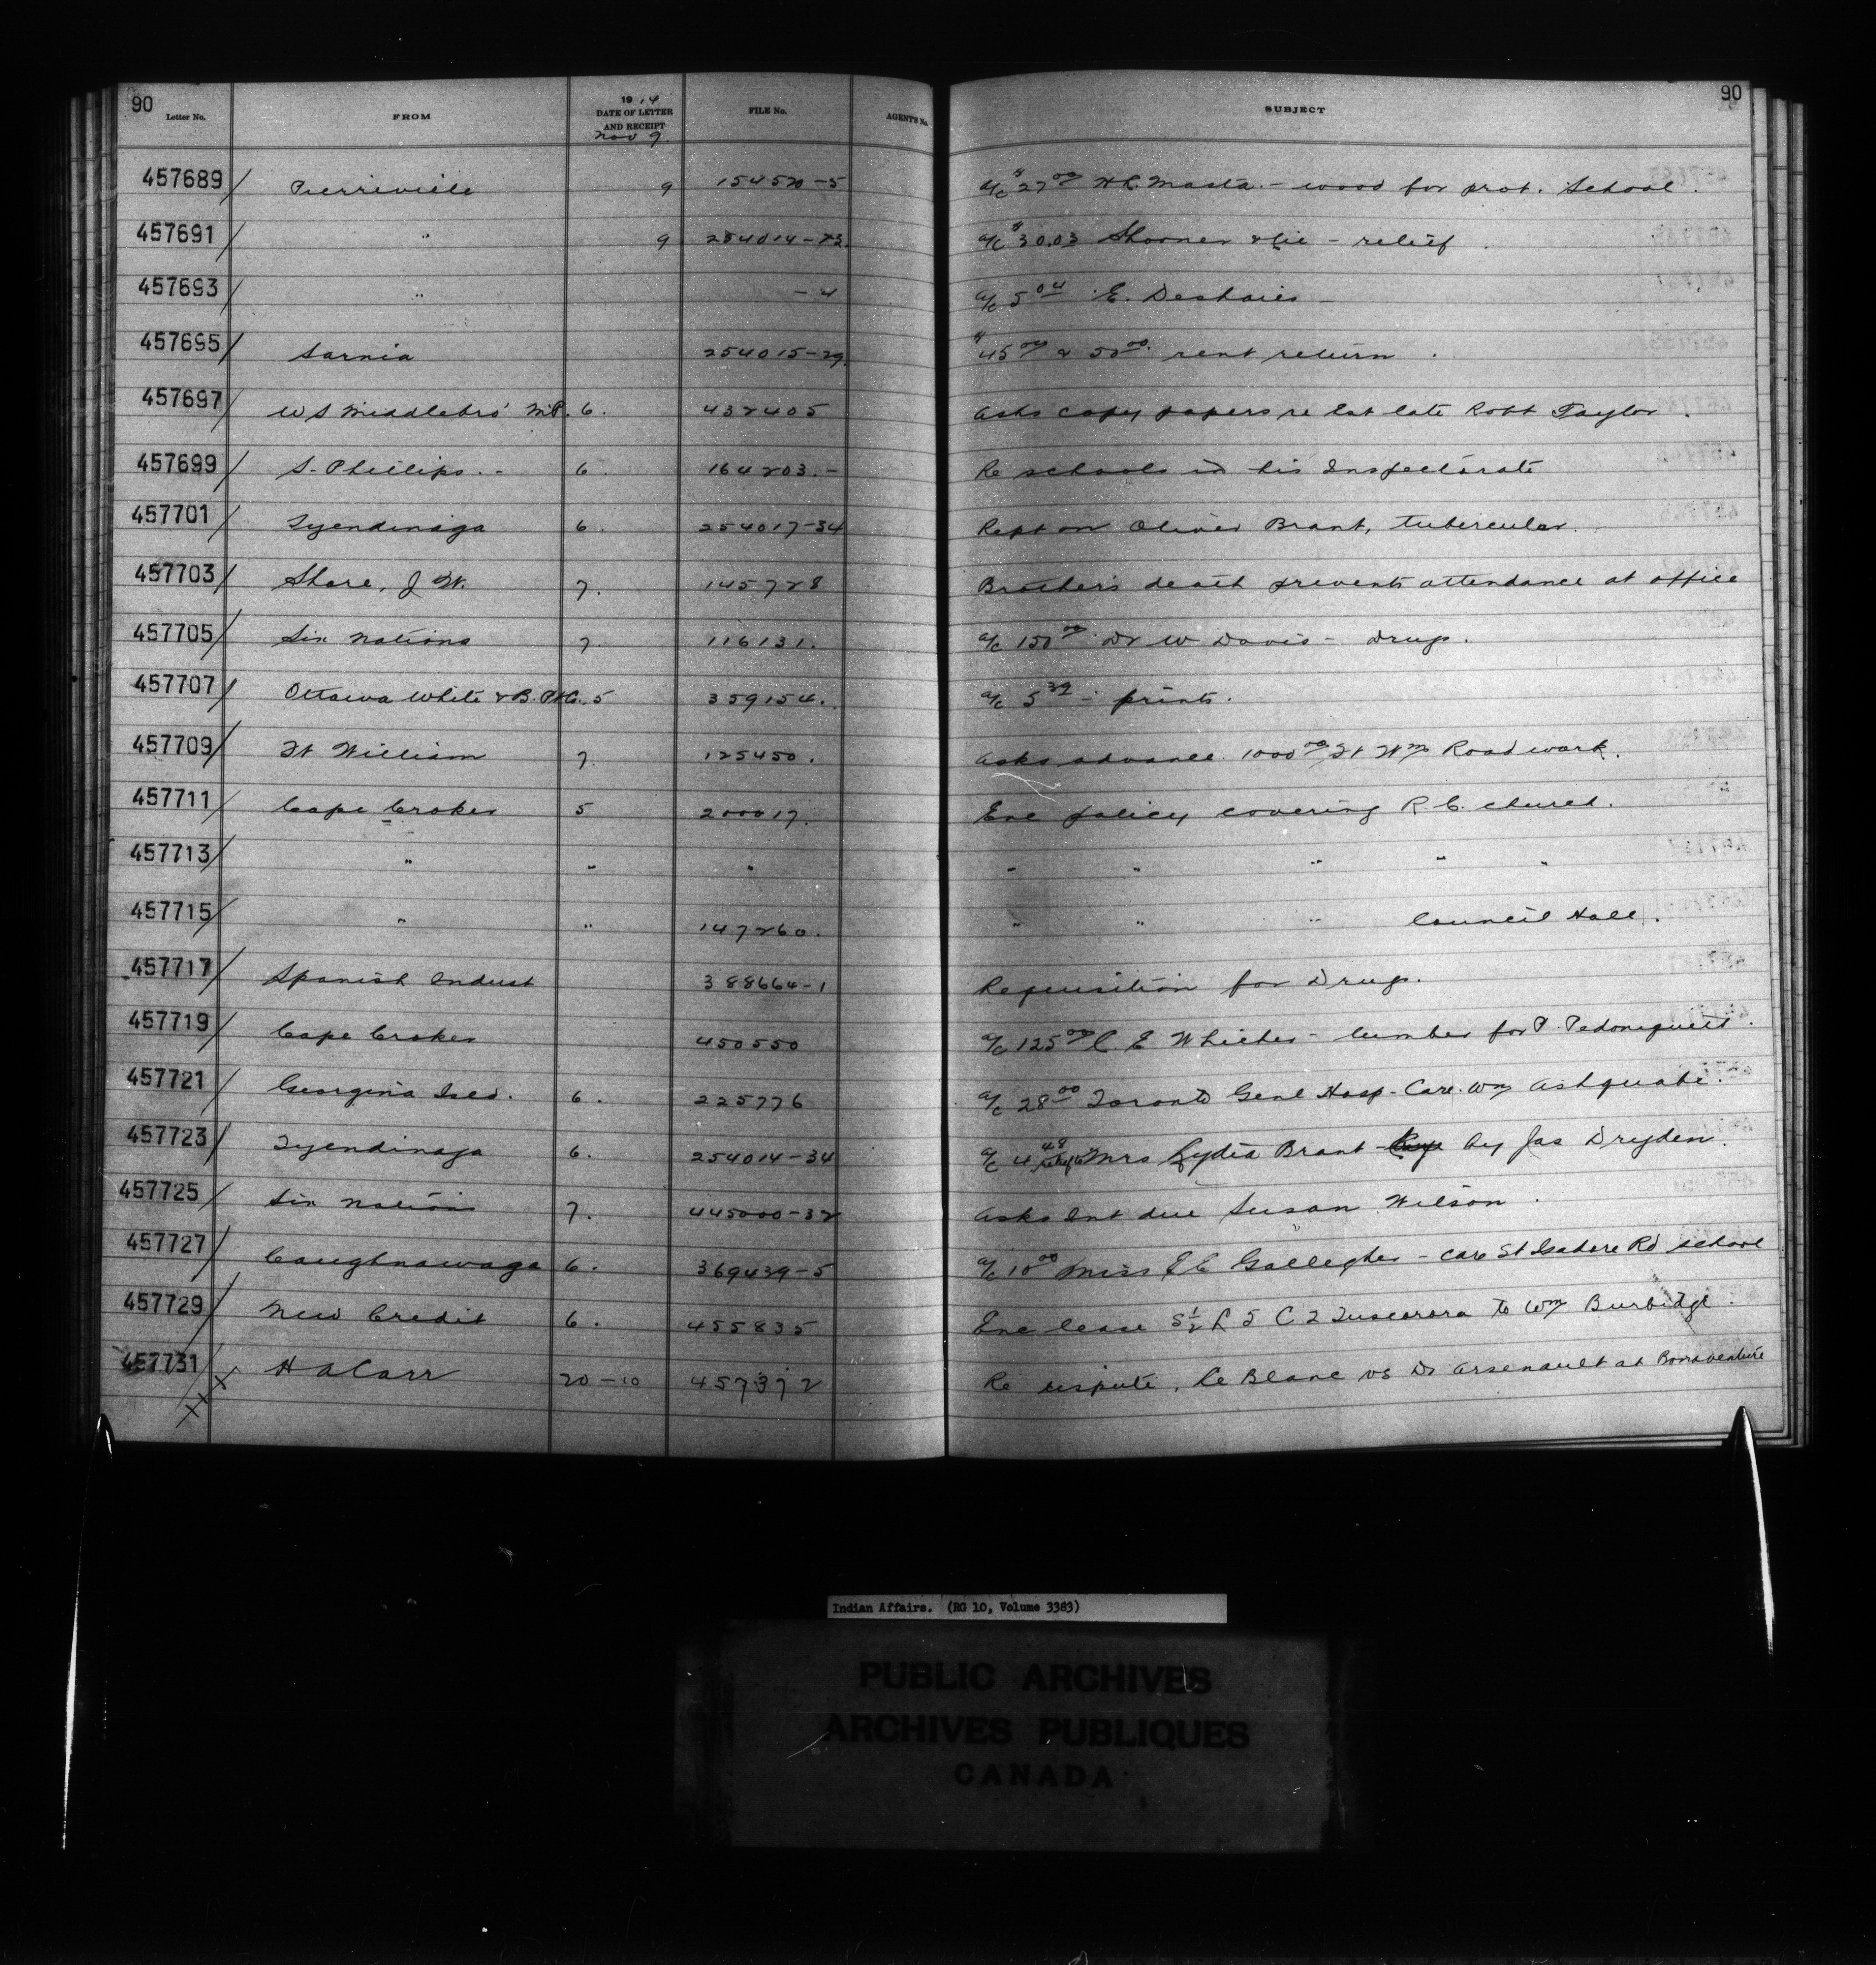 90 90
Letter No. FROM 1914 DATE OF LETTER AND RECEIPT Nov 9 FILE No. AGENT'S No. SUBJECT
457689 Pierreville 9 154520-5 a/c $27.00 H.L. Masta - wood for prot. School.
457691 " 9 254014-23 a/c $30.03 Shooner & Cie - relief.
457693 " -4 a/c 5.04 E. Deshaies -
457695 Sarnia 254015-29 $45.00 & 50.00 rent return.
457697 W S Middlebro' M.P. 6. 432405 Asks copy papers re Est late Robt Taylor.
457699 S. Phillips. - 6. 164203.- Re schools in his Inspectorate
457701 Tyendinaga 6. 254017-34 Rept on Oliver Brant, tubercular.
457703 Shore, J W. 7. 145728 Brother's death prevents attendance at office
457705 Six Nations 7. 116131. a/c 150.00 Dr W Davis - drugs.
457707 Ottawa White & B. P. Co. 5 359154. a/c 5.39 - prints.
457709 Ft William 7. 125450. Asks advance 1000.00 Ft Wm Road work.
457711 Cape Croker 5 200017. Enc policy covering R.C. church.
457713 " " " " " " " "
457715 " " 147260. " " " Council Hall.
457717 Spanish Indust 388664-1 Requisition for Drugs.
457719 Cape Croker 450550 a/c 125.00 C. E Whicher - lumber for P. Pedoniquott.
457721 Georgina Isld. 6. 225776 a/c 28.00 Toronto Genl Hosp - Care Wm Ashquabe.
457723 Tyendinaga 6. 254014-34 a/c 4.48 relief to Mrs Lydia Brant - by Jas Dryden.
457725 Six Nations 7. 445000-32 Asks Int due Susan Wilson.
457727 Caughnawaga 6. 369439-5 a/c 10.00 Miss E C Gallegher - care St Isadore Rd school
457729 New Credit 6. 455835 Enc lease S½ L 5 C 2 Tuscarora to Wm Burbidge.
457731 H A Carr 20-10 457372 Re dispute, Le Blanc vs Dr Arsenault at Bonaventure
Indian Affairs. (RG 10, Volume 3383)
PUBLIC ARCHIVES
ARCHIVES PUBLIQUES
CANADA